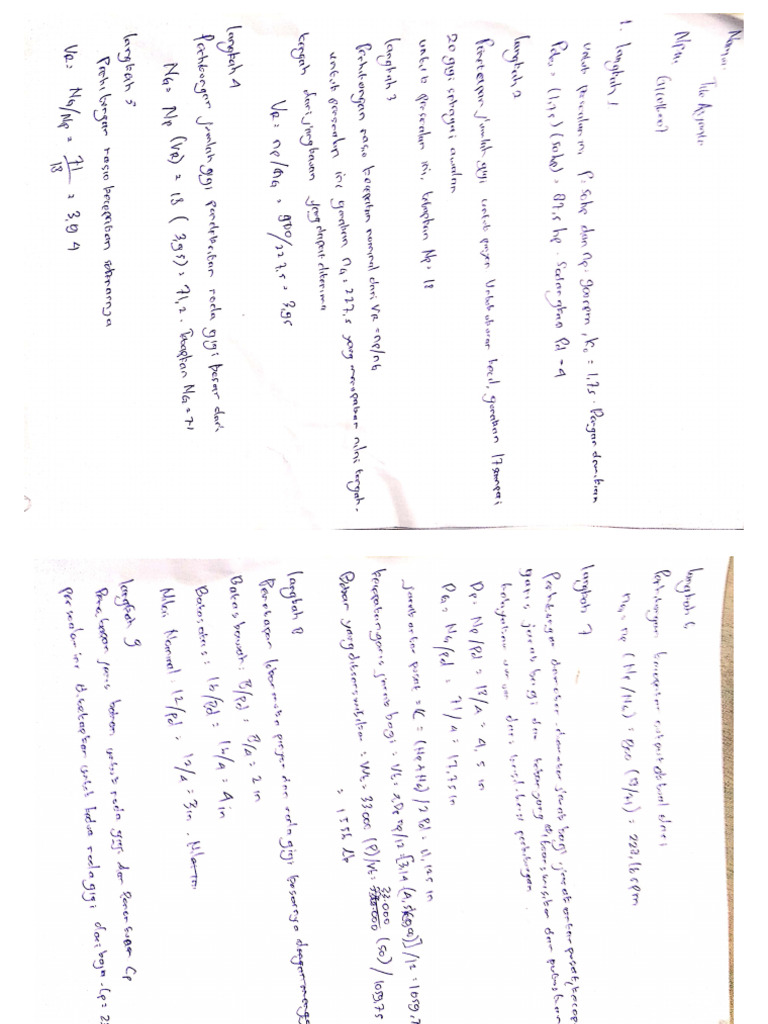 Nama :
Npm
1. Langkah 1
untuk persoalan ini, P = 50hp dan np = 900rpm, Ko = 1,75. Dengan demikian
Pdes = (1,75)(50hp) = 87,5 hp. Sedangkan Pd = 4
Langkah 2
Penetapan jumlah gigi untuk pinyon untuk ukuran kecil, gunakan 17 sampai
20 gigi sebagai awalan
untuk persoalan ini, tetapkan Np = 18
Langkah 3
Perhitungan rasio kecepatan nominal dari VR = np/nG
untuk persoalan ini gunakan nG = 227,5 yang merupakan nilai tengah.
tengah dari jangkauan yang dapat diterima
VR = np/nG = 900/227,5 = 3,95
Langkah 4
Perhitungan jumlah gigi pendekatan roda gigi besar dari
NG = Np (VR) = 18 (3,95) = 71,2. Tetapkan NG = 71
Langkah 5
Perhitungan rasio kecepatan sebenarnya
VR = NG/Np = 71/18 = 3,94
Langkah 6
Perhitungan kecepatan output aktual dari
nG = np (Np/NG) = 900 (18/71) = 227,16 rpm
Langkah 7
Perhitungan diameter diameter jarak bagi, jarak antar pusat, kecep
garis jarak bagi dan beban yang ditransmisikan dan
dari hasil hasil perhitungan
Dp = Np/Pd = 18/4 = 4,5 in
DG = NG/Pd = 71/4 = 17,75 in
jarak antar pusat = C = (Np + NG)/2Pd = 11,125 in
kecepatan garis jarak bagi = Vt = πDp np/12 = [3,14 (4,5)(900)]/12 = 1059,7
Beban yang ditransmisikan = Wt = 33000 (P)/Vt = 33.000 (50)/1059,75
= 1556 lb
Langkah 8
Penetapan lebar muka pinyon dan roda gigi besarnya dengan meng
Batas bawah : 8/Pd = 8/4 = 2 in
Batas atas : 16/Pd = 16/4 = 4 in
Nilai Nominal : 12/Pd = 12/4 = 3 in.
Langkah 9
Penetapan jenis bahan untuk roda gigi dan Penentuan Cp
persoalan ini ditetapkan untuk kedua roda gigi dari baja. Cp = 2